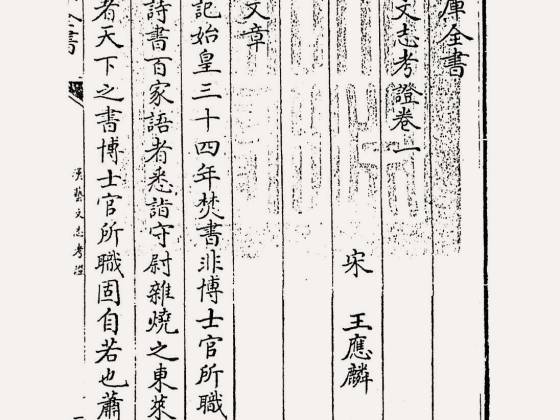 庫全書
文志考證卷一
宋　王應麟
文章
記始皇三十四年焚書非博士官所職
詩書百家語者悉詣守尉雜燒之東萊
者天下之書博士官所職固自若也蕭
全書
漢藝文志考證